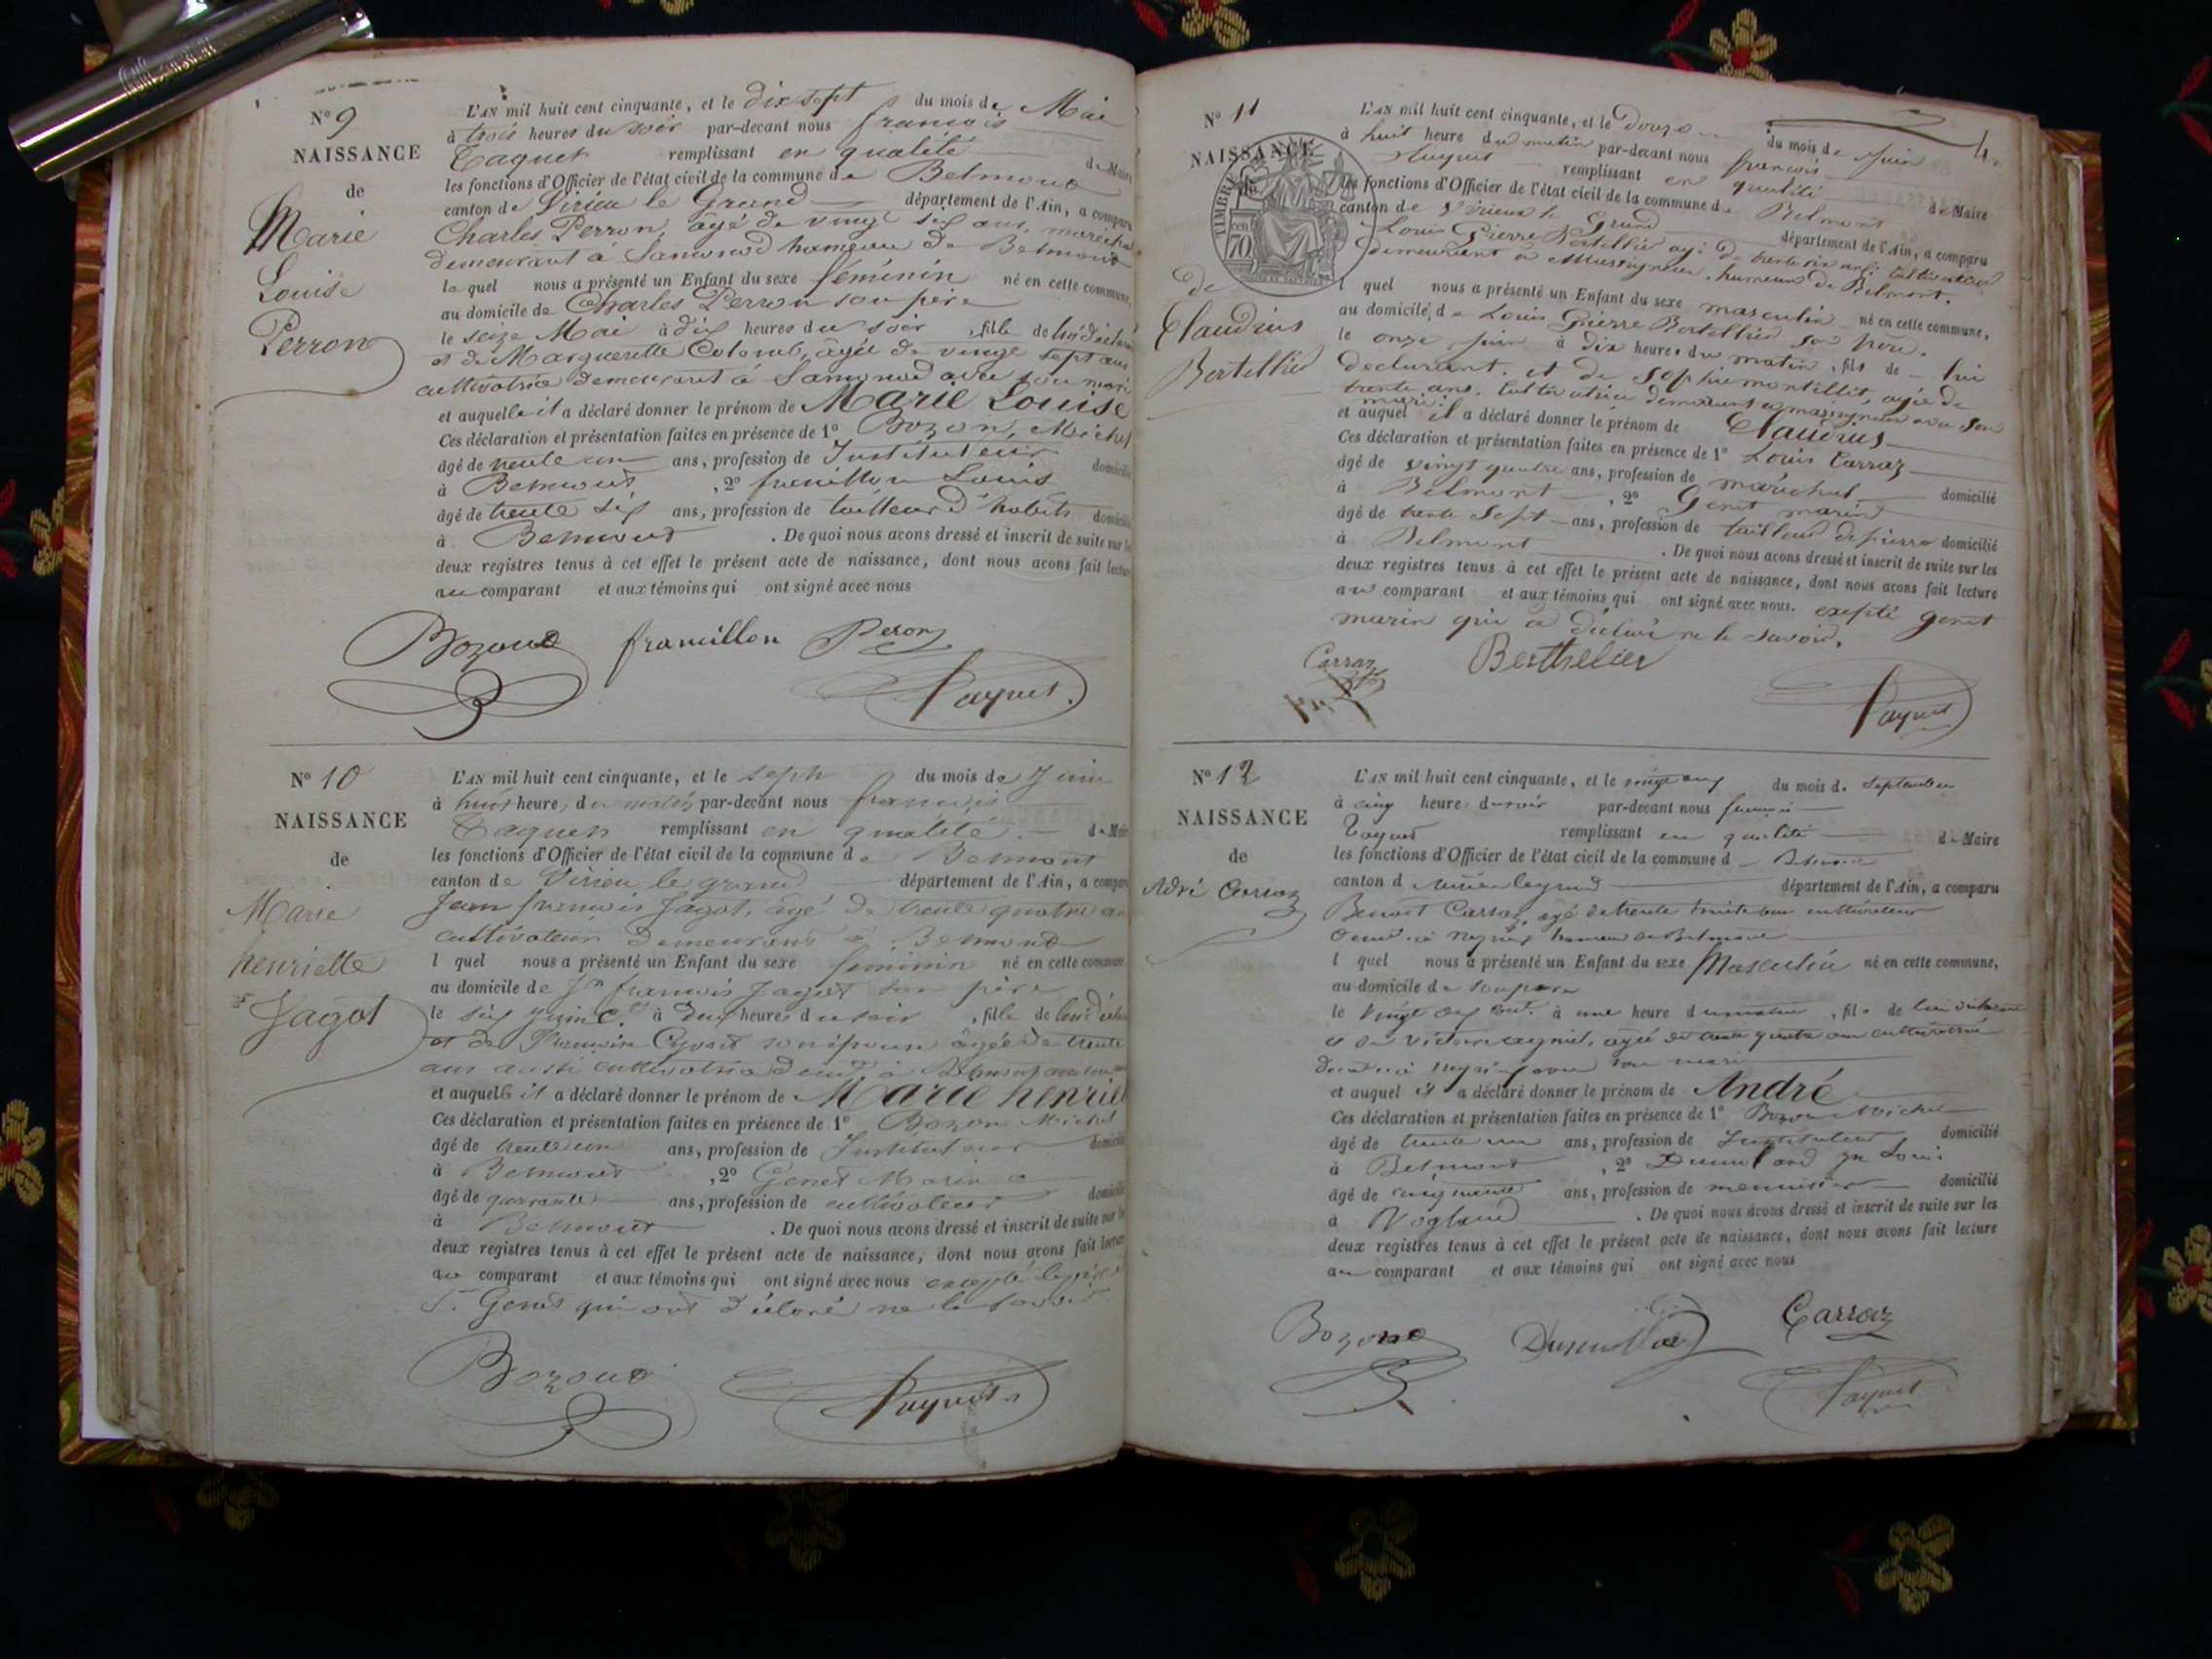 N° 9
NAISSANCE
de
Marie
Louise
Perron
L'AN mil huit cent cinquante, et le dix sept du mois de Mai
à trois heures du soir par-devant nous françois
Taquet remplissant en qualité de Maire
les fonctions d'Officier de l'état civil de la commune de Belmont
canton de Virieu le Grand département de l'Ain, a comparu
Charles Perron, âgé de vingt six ans, maréchal
demeurant à hameau de Belmont
le quel nous a présenté un Enfant du sexe féminin né en cette commune,
au domicile de Charles Perron son père
le seize Mai à dix heures du soir , fille de lui déclarant
et de Margueritte Colomb, âgée de vingt sept ans
cultivatrice demeurant à avec son mari
et auquelle il a déclaré donner le prénom de Marie Louise
Ces déclaration et présentation faites en présence de 1° Bozon, Michel
âgé de trente un ans, profession de Instituteur domicilié
à Belmont , 2° framillon Louis
âgé de trente six ans, profession de tailleur d'habits domicilié
à Belmont . De quoi nous avons dressé et inscrit de suite sur les
deux registres tenus à cet effet le présent acte de naissance, dont nous avons fait lecture
au comparant et aux témoins qui ont signé avec nous
Bozond framillon Peron
Taquet
N° 10
NAISSANCE
de
Marie
henriette
Jagot
L'AN mil huit cent cinquante, et le sept du mois de Juin
à huit heure, du matin par-devant nous françois
Taquet remplissant en qualité de Maire
les fonctions d'Officier de l'état civil de la commune de Belmont
canton de Virieu le grand département de l'Ain, a comparu
Jean françois Jagot, âgé de trente quatre ans
cultivateur demeurant à Belmont
l quel nous a présenté un Enfant du sexe féminin né en cette commune,
au domicile de Jn françois Jagot son père
le six Juin Ct à deux heures du soir , fille de lui déclarant
et de son épouse âgée de trente
ans aussi cultivatrice à Belmont
et auquelle il a déclaré donner le prénom de Marie henriel
Ces déclaration et présentation faites en présence de 1° Bozon Michel
âgé de trente un ans, profession de Instituteur domicilié
à Belmont , 2° Genet Marin
âgé de quarante ans, profession de cultivateur domicilié
à Belmont . De quoi nous avons dressé et inscrit de suite sur les
deux registres tenus à cet effet le présent acte de naissance, dont nous avons fait lecture
au comparant et aux témoins qui ont signé avec nous excepté le père
Genet qui ont déclaré ne le savoir
Bozond Taquet
4.
N° 11
NAISSANCE
TIMBRE
70
de
Claudius
Bertellier
L'AN mil huit cent cinquante, et le douze du mois de Juin
à huit heure du matin par-devant nous françois
Taquet remplissant en qualité de Maire
les fonctions d'Officier de l'état civil de la commune de Belmont
canton de Virieux le Grand département de l'Ain, a comparu
Louis Pierre Bertellier agé de trente six ans, cultivateur
demeurant a Massignieu, hameau de Belmont.
l quel nous a présenté un Enfant du sexe masculin né en cette commune,
au domicile de Louis Pierre Bertellier son père.
le onze Juin à dix heures du matin , fils de lui
declarant. et de Sophie montillet, agée de
trente ans, cultivatrice demeurant a massignieu avec son
mari
et auquel il a déclaré donner le prénom de Claudius
Ces déclaration et présentation faites en présence de 1° Louis Carraz
âgé de vingt quatre ans, profession de maréchal domicilié
à Belmont , 2° Genet marin
âgé de trente sept ans, profession de tailleur de pierre domicilié
à Belmont . De quoi nous avons dressé et inscrit de suite sur les
deux registres tenus à cet effet le présent acte de naissance, dont nous avons fait lecture
au comparant et aux témoins qui ont signé avec nous. exepté genet
marin qui a déclaré ne le savoir.
Carraz Berthelier
Taquet
N° 12
NAISSANCE
de
Adré Carraz
L'AN mil huit cent cinquante, et le du mois de Septembre
à cinq heure du soir par-devant nous françois
Taquet remplissant en qualité de Maire
les fonctions d'Officier de l'état civil de la commune d Belmont
canton d Virieu le grand département de l'Ain, a comparu
Benoit Carraz, agé de trente ans cultivateur
hameau de Belmont
l quel nous a présenté un Enfant du sexe Masculin né en cette commune,
au domicile de son pere
le vingt à une heure du matin , fils de lui déclarant
et de Victoire agée de trente quatre ans cultivatrice
avec son mari
et auquel il a déclaré donner le prénom de André
Ces déclaration et présentation faites en présence de 1° Bozon Michel
âgé de trente un ans, profession de Instituteur domicilié
à Belmont , 2° Louis
âgé de cinquante ans, profession de menuisier domicilié
à Vogland . De quoi nous avons dressé et inscrit de suite sur les
deux registres tenus à cet effet le présent acte de naissance, dont nous avons fait lecture
au comparant et aux témoins qui ont signé avec nous
Bozond Carraz
Taquet